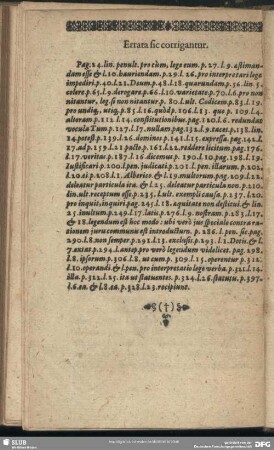 Errata sic corrigantur.
Pag. 24. lin. penult. pro cùm, lege eum. p. 27. l. 9. æstiman-
dam esse & l. 10. hauriendam. p. 29. l. 26. pro interpretari lege
impediri p. 40. l. 21. Deum. p. 48. l. 18. quarundam. p. 56. lin. 5.
celere p. 65. l. 9. derogare p. 66. l. 10. varietate p. 70. l. 6. pro non
nitantur, leg. si non nitantur p. 80. l. ult. Codicem. p. 83. l. 19.
pro undiq, utiq; p. 85. l. 16. quòd p. 106. l. 23. que p. 109. l. 4.
alteram p. 112. l. 14. constitutionibus. pag. 120. l. 6. redundat
vocula Tum p. 127. l. 17. nullam pag. 132. l. 9. tacet p. 138. lin.
24. potest p. 139. l. 26. demimus p. 142. l. 13. expressa. pag. 142. l.
27. ad p. 159. l. 21. pacto p. 161. l. 22. reddere licitum pag. 176.
l. 17. veritas p. 187. l. 16. dicimus p. 190. l. 10. pag. 198. l. 19.
Iustificari p. 200. l. pen. judicati p. 201. l. pen. illarum. p. 202.
l. 20. ei p. 208. l. 1. Alberico. & l. 19. mulierum pag. 209. l. 22.
deleatur particula ita. & l. 25. deleatur particula non p. 210.
lin. ult. receptum esse p. 235. l. ult. exempli causa p. 237. l. 10.
pro inquit, inquiri pag. 245. l. 18. æquitate non destitui. & lin.
25. inultum p. 249. l. 17. latis. p. 276. l. 9. nostram p. 283. l. 17.
& 18. legendum est hoc modo: ubi verò jus speciale contra ra-
tionem juris communis est introductum. p. 286. l. pen. sic pag.
290. l. 8. non semper p. 291. l. 13. exclusis p. 293. l. 1. Dotis. & l.
7. extat p. 294. l. antep. pro verò legendum videlicet. pag. 298.
l. 8. ipsorum p. 306. l. 8. ut cum p. 309. l. 15. aperentur p. 312.
l. 10. operandi & l. pen. pro interpretatio lege verba. p. 321. l. 14.
illa p. 322. l. 25. ita ut statuentes p. 324. l. 26. statutu p. 327.
l. 6. ea. & l. 8. ea. p. 328. l. 23. recipiunt.
SLUB